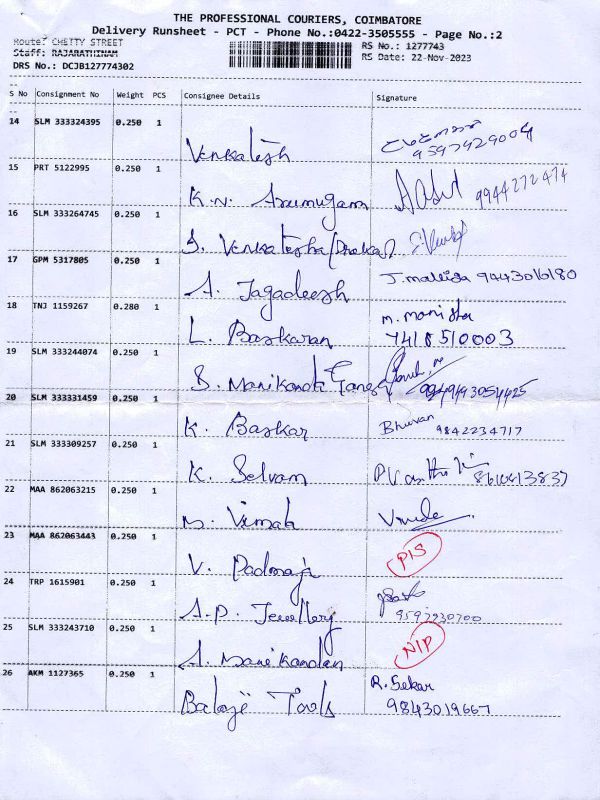 THE PROFESSIONAL COURIERS, COIMBATORE
Delivery Runsheet - PCT - Phone No.:0422-3505555 - Page No.:2
Route: CHETTY STREET
RS No.: 1277743
Staff: RAJARATHINAM
RS Date: 22-Nov-2023
DRS No.: DCJB127774302
S No Consignment No Weight PCS Consignee Details Signature
14 SLM 333324395 0.250 1 Venkatesh
15 PRT 5122995 0.250 1 K.N. Arumugam 9944272474
16 SLM 333264745 0.250 1 S. Venkatesha (Dhakar)
17 GPM 5317805 0.250 1 A. Jagadeesh J. 9443016180
18 TNJ 1159267 0.280 1 L. Baskaran m. monisha 7418510003
19 SLM 333244074 0.250 1 B. Manikanda
20 SLM 333331459 0.250 1 K. Baskar Bhuvan 9842234717
21 SLM 333309257 0.250 1 K. Selvam
22 MAA 862063215 0.250 1 M. Vimal
23 MAA 862063443 0.250 1 V. Padmaji
24 TRP 1615901 0.250 1 A.P. Jewellery
25 SLM 333243710 0.250 1 A. Manikandan NIP
26 AKM 1127365 0.250 1 Balaji Tools R. Sekar 9843019667